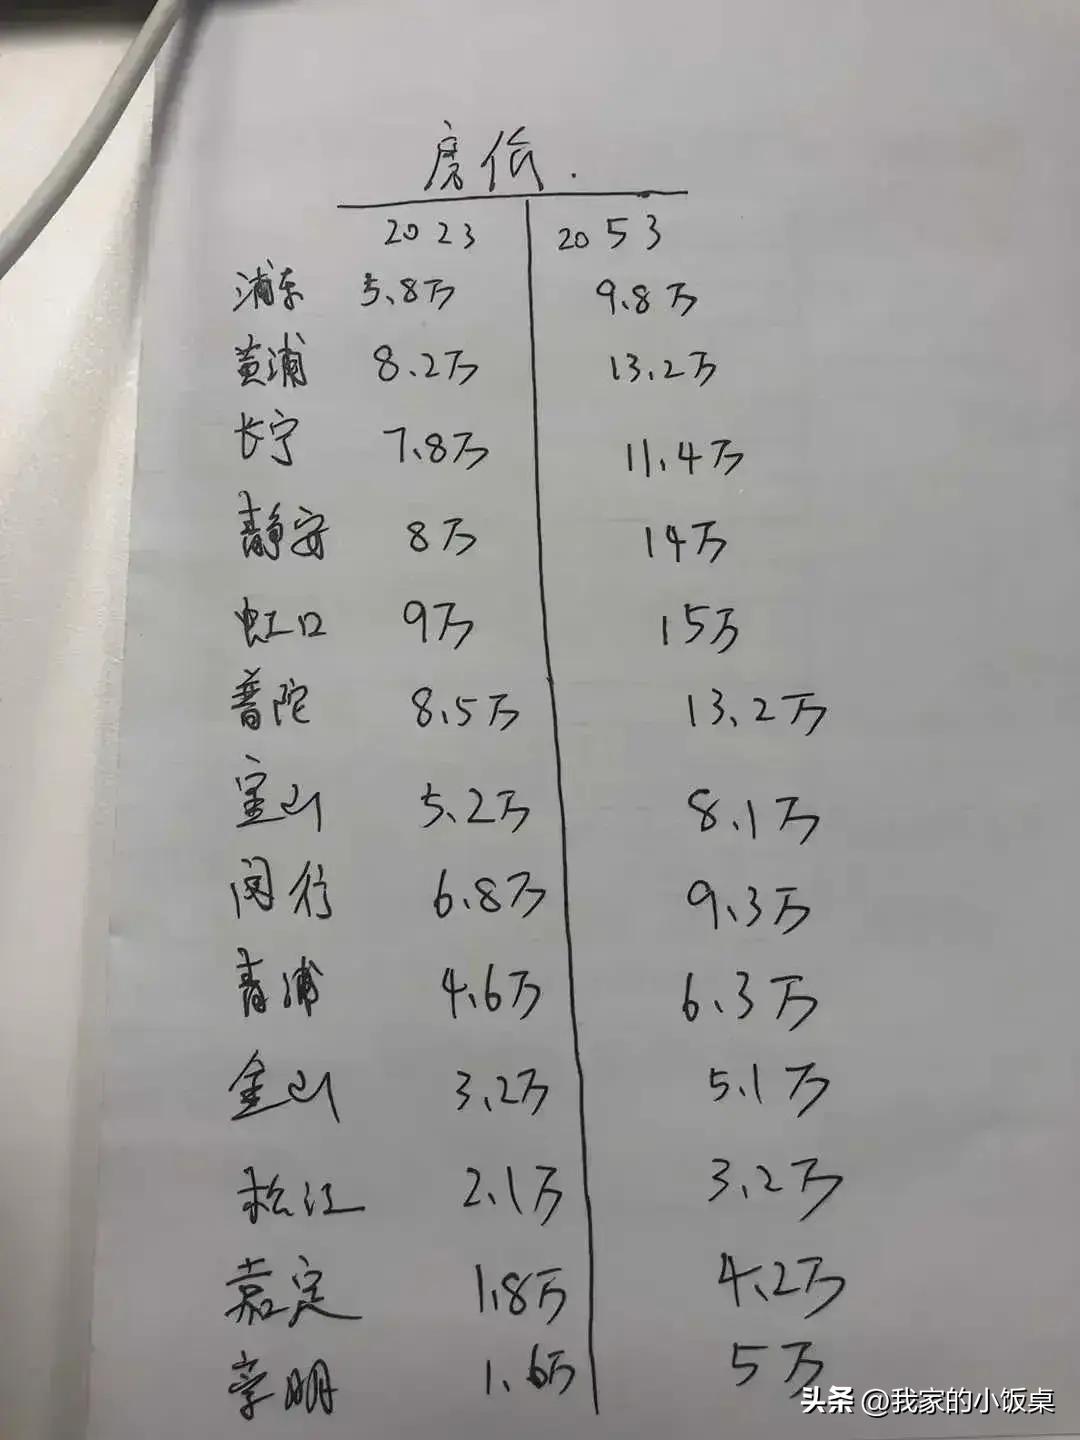 房价.
2023 2053
浦东 5.8万 9.8万
黄浦 8.2万 13.2万
长宁 7.8万 11.4万
静安 8万 14万
虹口 9万 15万
普陀 8.5万 13.2万
宝山 5.2万 8.1万
闵行 6.8万 9.3万
青浦 4.6万 6.3万
金山 3.2万 5.1万
松江 2.1万 3.2万
嘉定 1.8万 4.2万
崇明 1.6万 5万
头条 @我家的小饭桌